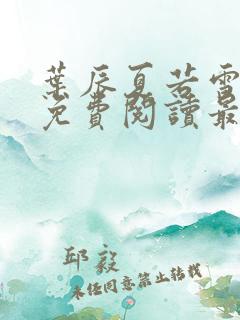 葉辰夏若雪
免費閱讀最
邱毅
未經同意禁止轉載